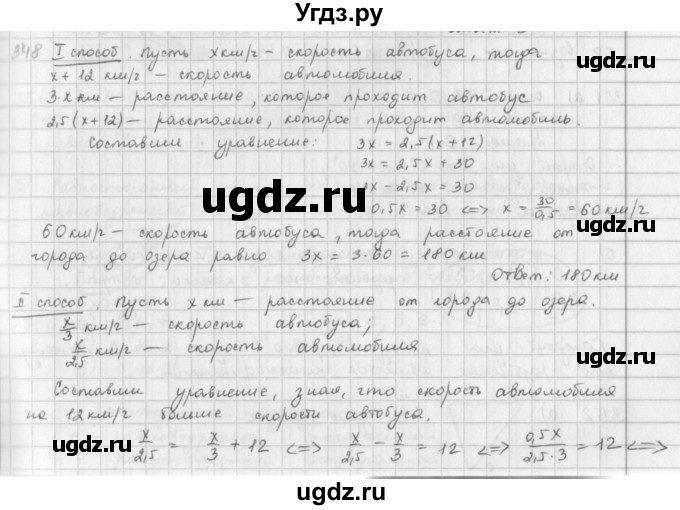 Угдз.ру
348 I способ. Пусть x км/г - скорость автобуса, тогда
x + 12 км/г - скорость автомобиля.
3·x км - расстояние, которое проходит автобус
2,5(x+12) - расстояние, которое проходит автомобиль.
Составим уравнение: 3x = 2,5(x+12)
3x = 2,5x + 30
3x - 2,5x = 30
0,5x = 30 <=> x = 30/0,5 = 60 км/г
60 км/г - скорость автобуса, тогда расстояние от
города до озера равно 3x = 3·60 = 180 км
Ответ: 180 км
II способ. Пусть x км - расстояние от города до озера.
x/3 км/г - скорость автобуса;
x/2,5 км/г - скорость автомобиля
Составим уравнение, зная, что скорость автомобиля
на 12 км/г больше скорости автобуса.
x/2,5 = x/3 + 12 <=> x/2,5 - x/3 = 12 <=> 0,5x/2,5·3 = 12 <=>
uhgdz.ru
uhgdz.ru
uhgdz.ru
uhgdz.ru
uhgdz.ru
uhgdz.ru
uhgdz.ru
uhgdz.ru